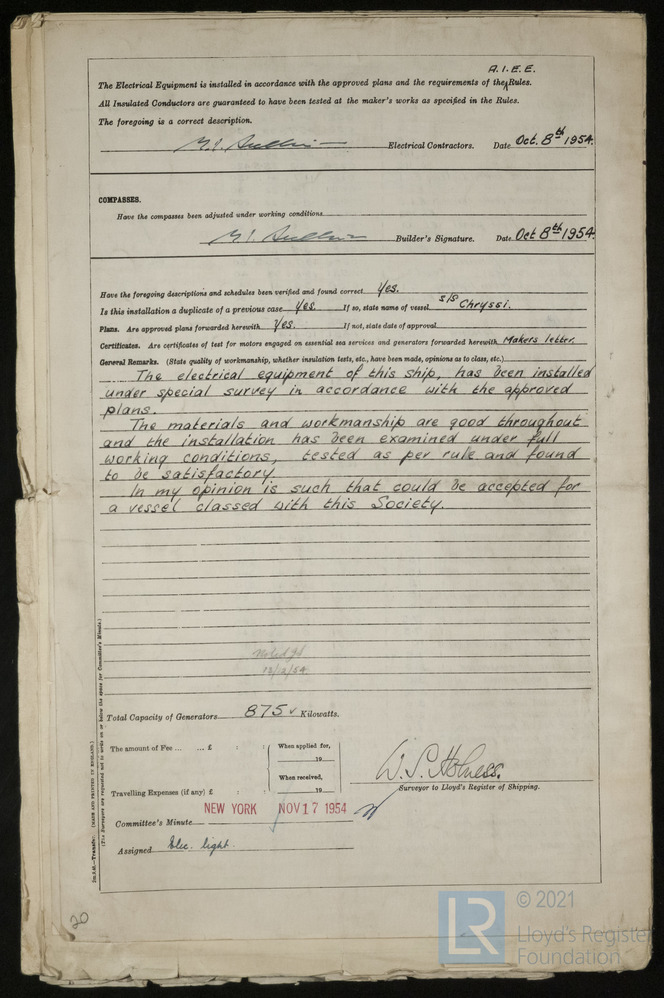 A.I.E.E.
The Electrical Equipment is installed in accordance with the approved plans and the requirements of the Rules.
All Insulated Conductors are guaranteed to have been tested at the maker's works as specified in the Rules.
The foregoing is a correct description.
Electrical Contractors. Date Oct. 8th 1954.
COMPASSES.
Have the compasses been adjusted under working conditions
Builder's Signature. Date Oct 8th 1954.
Have the foregoing descriptions and schedules been verified and found correct Yes.
Is this installation a duplicate of a previous case Yes. If so, state name of vessel S/S Chryssi.
Plans. Are approved plans forwarded herewith Yes. If not, state date of approval
Certificates. Are certificates of test for motors engaged on essential sea services and generators forwarded herewith Makers letter.
General Remarks. (State quality of workmanship, whether insulation tests, etc., have been made, opinions as to class, etc.)
The electrical equipment of this ship, has been installed
under special survey in accordance with the approved
plans.
The materials and workmanship are good throughout
and the installation has been examined under full
working conditions, tested as per rule and found
to be satisfactory.
In my opinion is such that could be accepted for
a vessel classed with this Society.
13/12/54
Total Capacity of Generators 875 Kilowatts.
The amount of Fee ... ... £ : : When applied for,
19
When received,
Travelling Expenses (if any) £ : : 19
W.S. Holness.
Surveyor to Lloyd's Register of Shipping.
NEW YORK NOV 17 1954
Committee's Minute
Assigned Elec. light.
(MADE AND PRINTED IN ENGLAND.)
(The Surveyors are requested not to write on or below the space for Committee's Minute.)
20
LR
© 2021
Lloyd's Register
Foundation